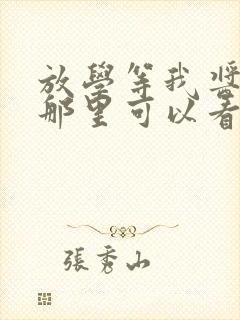 放學等我將
那里可以看
張秀山